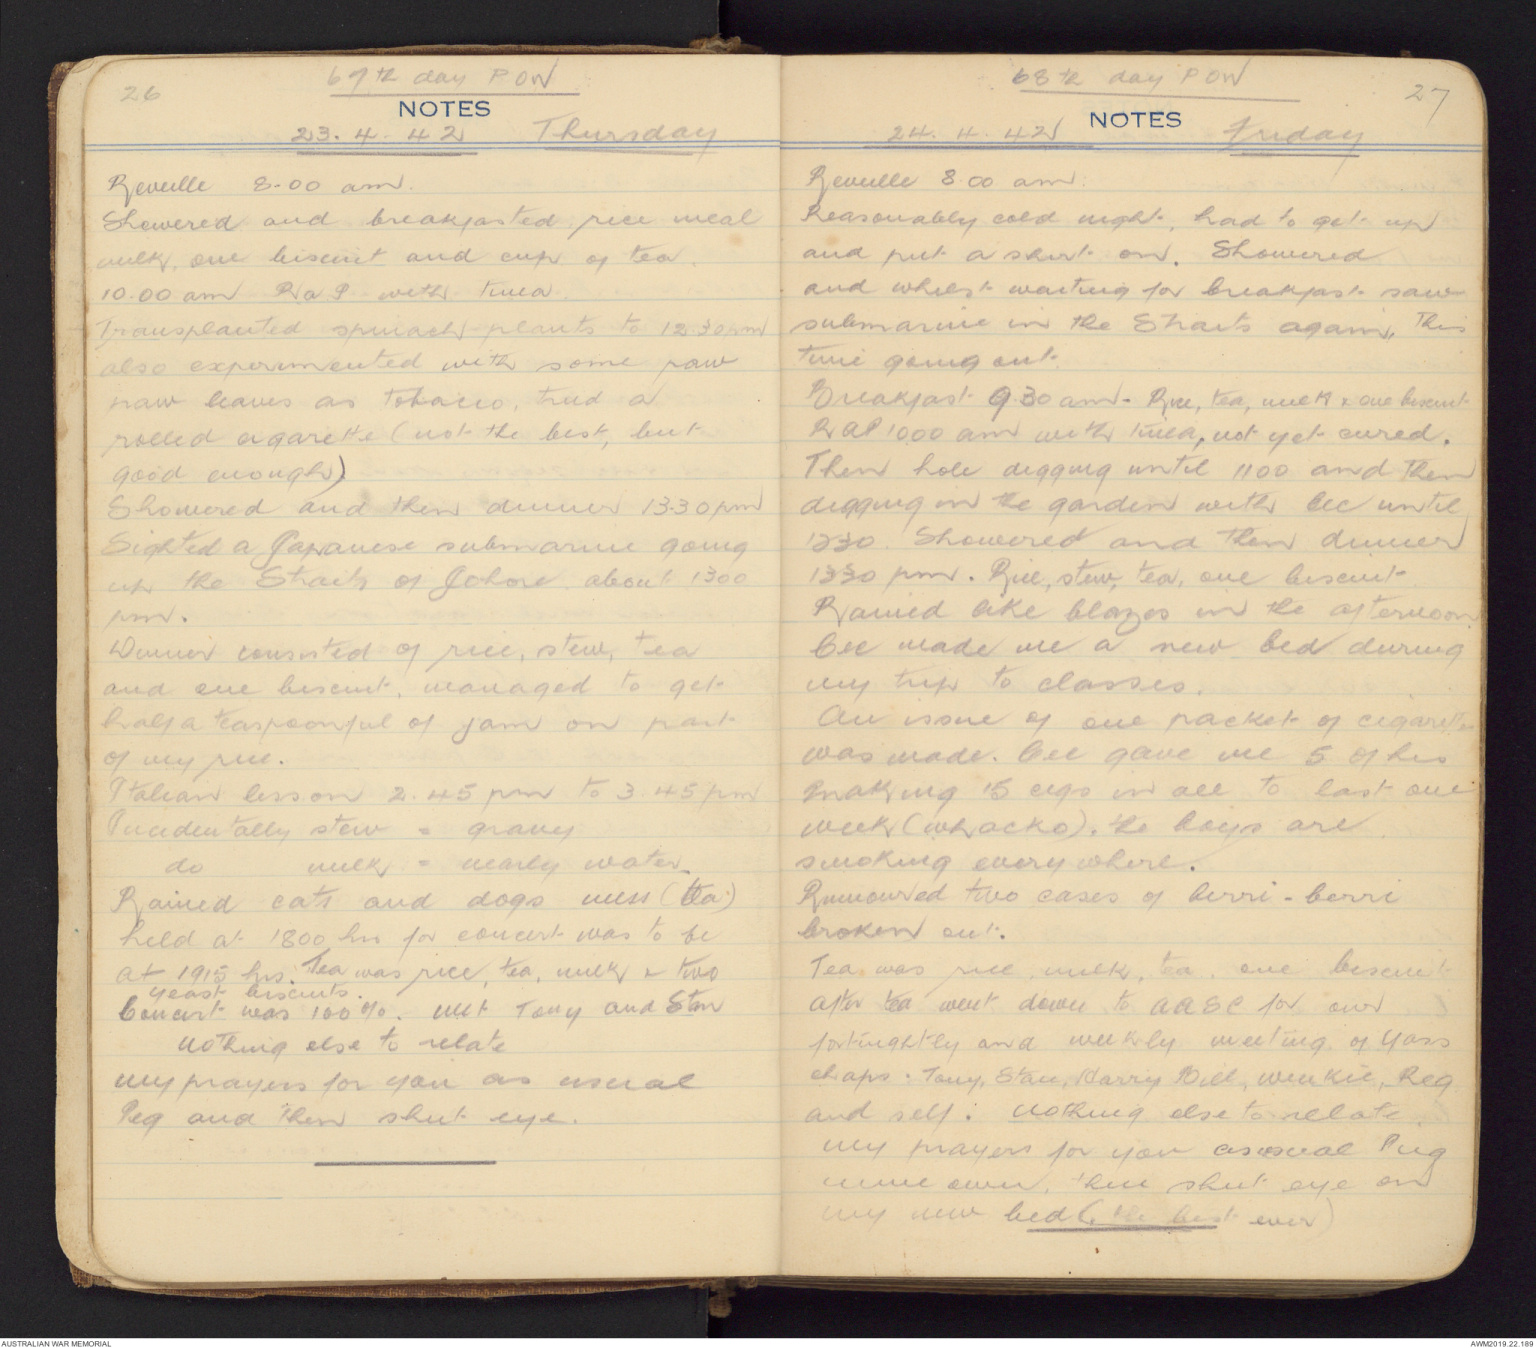 26
67th day POW
NOTES
23.4.42 Thursday
Reveille 8.00 am.
Showered and breakfasted rice meal
milk, one biscuit and cup of tea.
10.00 am RaP with tinea.
Transplanted spinach plants to 12.30pm
also experimented with some paw
paw leaves as tobacco, tried a
rolled cigarette (not the best, but
good enough)
Showered and then dinner 13.30pm
Sighted a Japanese submarine going
up the Straits of Johore about 1300
pm.
Dinner consisted of rice, stew, tea
and one biscuit, managed to get
half a teaspoonful of jam on part
of my rice.
Italian lesson 2.45 pm to 3.45 pm
Incidentally stew = gravy
do milk = nearly water.
Rained cats and dogs mess (tea)
held at 1800 hrs for concert was to be
at 1915 hrs. Tea was rice, tea, milk & two
yeast biscuits.
Concert was 100%. met Tony and Stan
nothing else to relate
my prayers for you as usual
Peg and then shut eye.
68th day POW
27
NOTES
24.4.42 Friday
Reveille 8.00 am.
Reasonably cold night, had to get up
and put a shirt on. Showered
and whilst waiting for breakfast saw
submarine in the Straits again, this
time going out.
Breakfast 9.30 am - Rice, tea, milk & one biscuit
RAP 1000 am with tinea, not yet cured.
Then hole digging until 1100 and then
digging in the garden with Cec until
1230. Showered and then dinner
1330 pm. Rice, stew, tea, one biscuit.
Rained like blazes in the afternoon
Cec made me a new bed during
my trip to classes.
An issue of one packet of cigarettes
was made. Cec gave me 5 of his
making 15 cigs in all to last one
week (whacko). the boys are
smoking everywhere.
Rumoured two cases of berri-berri
broken out.
Tea was rice, milk, tea, one biscuit
After tea went down to AASC for our
fortnightly and weekly meeting of Yass
chaps: Tony, Stan, Harry Bill, Reg
and self. Nothing else to relate.
my prayers for you as usual Peg
mine own, then shut eye on
my new bed (the best ever)
AUSTRALIAN WAR MEMORIAL
AWM2019.22.189